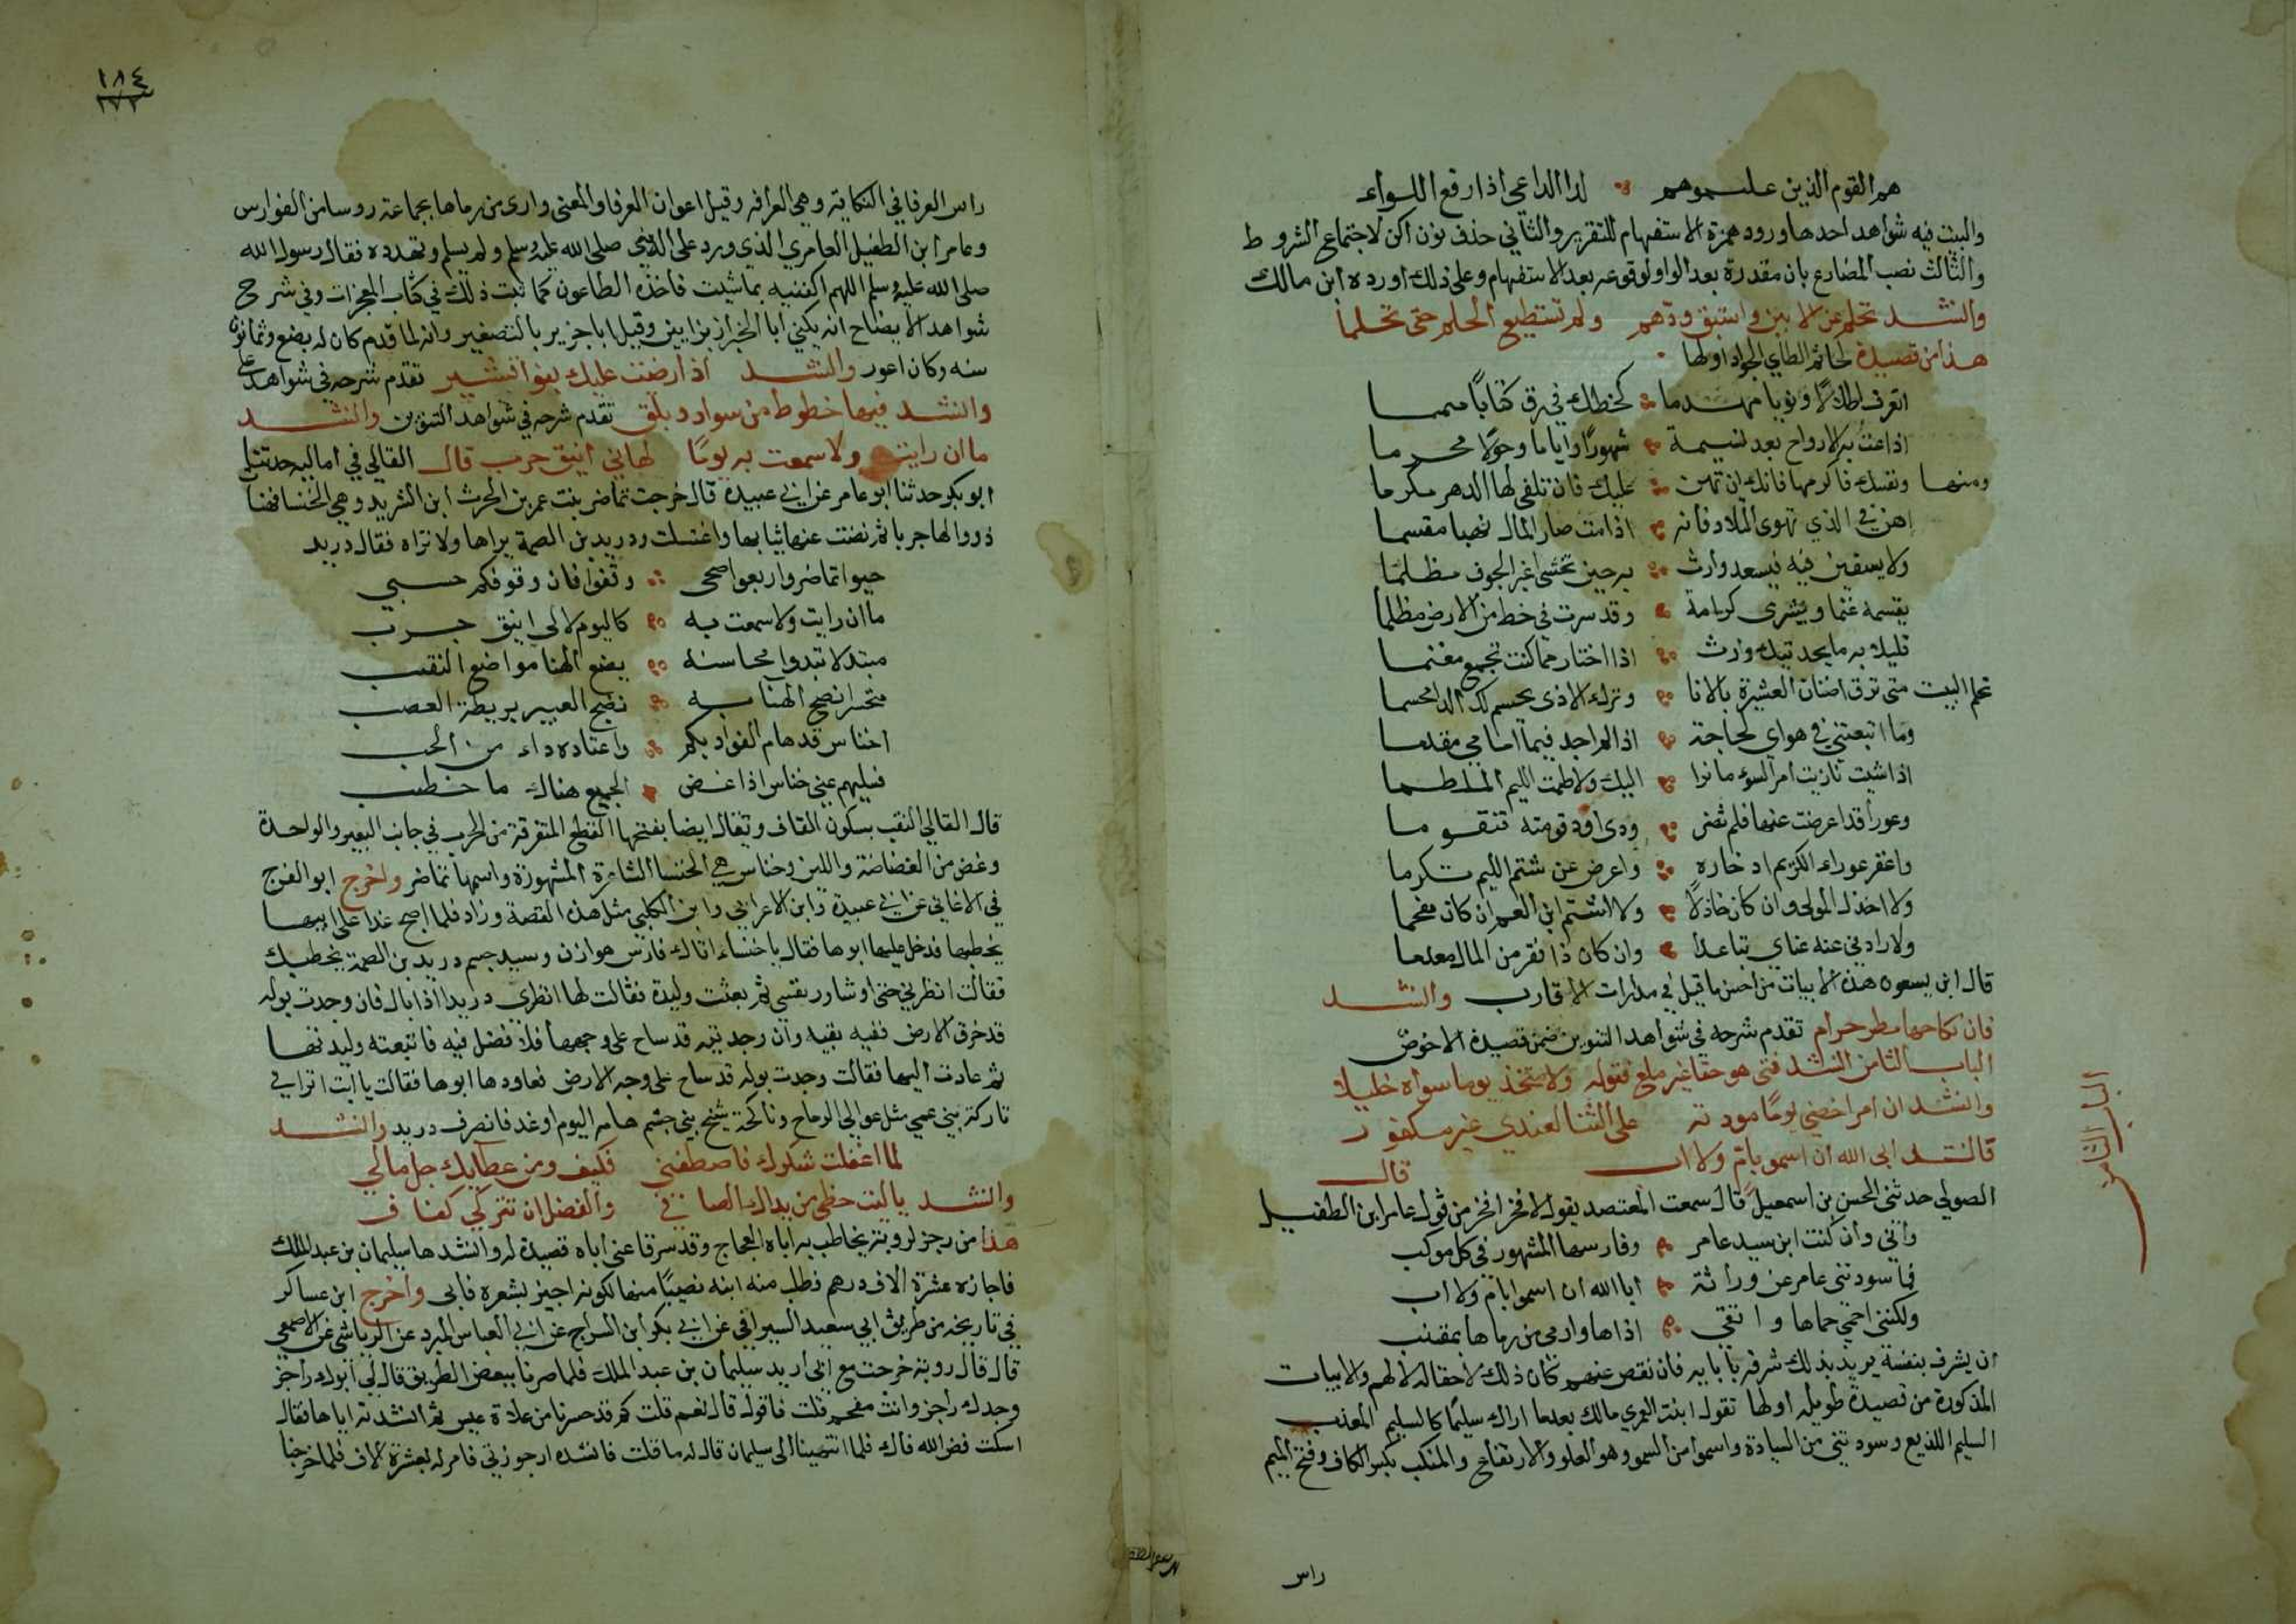 هم القوم الذين علموهم لدا الداعي اذا رفع اللواء
والبيت فيه شواهد احدها ورود همزة الاستفهام للتقرير والثاني حذف نون اكن لاجتماع الشروط
والثالث نصب المضارع بان مقدرة بعد الواو لوقوعه بعد الاستفهام وعلى ذلك اورده ابن مالك
وانشد تحلم عن الادنين واستبق ودهم ولم تستطيع الحلم حتى تحلما
هذا من قصيدة لحاتم الطاي الجواد اولها
اتعرف اطلالا ونويا مهدما كخطك في رق كتابا منمنما
اذاعت به الارواح بعد انيسه شهورا واياما وحولا محرما
ومنها ونفسك فاكرمها فانك ان تهن عليك فان تلفي لها الدهر مكرما
اهن في الذي تهوى التلاد فانه اذا مت صار المال نهبا مقسما
ولا يسقين فيه فيسعد وارث به حين تخشى اغبر الجوف مظلما
يقسمه غنما ويشرى كرامة وقد سرت في خط من الارض مظلما
قليل به ما يحمدنك وارث اذا اختار مما كنت تجمع مغنما
تحلم البيت متى ترق اضغان العشيرة بالانا وترك الاذى يحسم لك الدا محسما
وما ابتعثتني في هواي لحاجة اذا لم اجد فيما امامي مقدما
اذا شيت نازيت امر السوء ما نزا اليك ولاطمت الليم الملطما
وعورا قد اعرضت عنها فلم تضر وذي اود قومته فتقوما
واغفر عوراء الكريم ادخاره واعرض عن شتم الليم تكرما
ولا اخذل المولى وان كان خاذلا ولا اشتم ابن العم ان كان مفحما
ولا زادني عنه غناي تباعدا وان كان ذا نقر من المال معدما
قال ابن يسعون هذه الابيات من احسن ما قيل في مدارات الاقارب وانشد
فان نكاحها مطر حرام تقدم شرحه في شواهد التنوين ضمن قصيدة الاخوض
الباب الثامن انشد فتى هو حقا غير ملغ قتوله ولا تتخذ يوما سواه خليلا
وانشد ان امرا خصني يوما مودته على الثنا لعندي غير مكفور
قال انشد ابى الله ان اسمو بام ولا اب قال
الباب الثامن
الصولي حدثني الحسن بن اسمعيل قال سمعت المعتصد يقول لا فخر افخر من قول عامر ابن الطفيل
واني وان كنت ابن سيد عامر وفارسها المشهور في كل موكب
فما سودتني عامر عن وراثة ابا الله ان اسموا بام ولا اب
ولكنني احمي حماها واتقي اذاها وارمي من رماها بمقنب
ان يشرف بنفسه يريد بذلك شرفه بابايه فان نقص عنهم كان ذلك لاحقا له لا لهم والابيات
المذكورة من قصيدة طويله اولها تقول ابنت العمري مالك بعدما اراك سليما كالسليم المعذب
السليم اللذيع وسودتني من السيادة واسموا من السمو وهو العلو والارتفاع والمنكب بكسر الكاف وفتح الميم
راس
١٨٤
راس العرفا في النكاية وهي العرافه وقيل اعوان العرفا والمعنى وارى من رماها بجماعة روسا من الفوارس
وعامر ابن الطفيل العامري الذي ورد على النبي صلى الله عليه وسلم ولم يسلم وتهدده فقال رسول الله
صلى الله عليه وسلم اللهم اكفنيه بما شيت فاخذه الطاعون كما ثبت ذلك في كتاب المعجزات وفي شرح
شواهد الايضاح انه يكني ابا الخزاز بزايين وقيل ابا جزير بالتصغير وانه لما قدم كان له بضع وثمانون
سنه وكان اعور وانشد اذا رضت عليك بنو اقشير تقدم شرحه في شواهد على
وانشد فيها خطوط من سواد وبلق تقدم شرحه في شواهد التنوين وانشد
ما ان رايت ولا سمعت به يوما لهاني اينق جرب قال القالي في اماليه حدثنا
ابو بكر حدثنا ابو عامر عن ابي عبيدة قال خرجت تماضر بنت عمر بن الحرث ابن الشريد وهي الخنسا فهنا
ذودا لها جربا ثم نضت عنها ثيابها واغتسلت ودريد بن الصمة يراها ولا تراه فقال دريد
حيوا تماضر واربعوا صحبي وقفوا فان وقوفكم حسبي
ما ان رايت ولا سمعت به كاليوم لالى اينق جرب
مبتدلا تبدوا محاسنه يضع الهنا مواضع النقب
متحسرا نضح الهنا به نضح العبير بريطة العصب
اخناس قد هام الفواد بكم واعتاده داء من الحب
فسليهم عني خناس اذا غض الجميع هناك ما خطب
قال القالي النقب بسكون القاف وتقال ايضا بفتحها القطع المتفرقة من الجرب في جانب البعير والواحدة
وغض من الغضاضة واللين وخناس هي الخنسا الشاعرة المشهورة واسمها تماضر واخرج ابو الفرج
في الاغاني عن ابي عبيدة وابن الاعرابي وابن الكلبي مثل هذه القصة وزاد فلما اصبح غدا على ابيها
يخطبها فدخل عليها ابوها فقال يا خنساء اتاك فارس هوازن وسيد جسم دريد بن الصمة يخطبك
فقالت انظرني حتى اوشاور نفسي ثم بعثت وليدة فقالت لها انظري دريدا اذا بال فان وجدت بوله
قد خرق الارض ففيه بقيه وان وجدتيه قد ساح على وجهها فلا فضل فيه فاتبعته وليدتها
ثم عادت اليها فقالت وجدت بوله قد ساح على وجه الارض فعاودها ابوها فقالت يا ابت اتراني
تاركة بني عمي مثل عوالي الرماح وناكحة شيخ بني جشم هامه اليوم او غد فانصرف دريد وانشد
لما اغفلت شكرك فاصطفني فكيف ومن عطايك جل مالي
وانشد يا ليت حظي من يداك الصافي والفضل ان تتركي كفاف
هذا من رجز لروبة يخاطب به اباه العجاج وقد سرقا عني اباه قصيدة له وانشدها سليمان بن عبد الملك
فاجازه عشرة الاف درهم فطلب منه ابنه نصيبا منها لكونه اجيز بشعره فابى واخرج ابن عساكر
في تاريخه من طريق ابي سعيد السيرافي عن ابي بكر ابن السراج عن ابي العباس المبرد عن الرياشي عن الاصمعي
قال قال روبة خرجت مع ابي اريد سليمان بن عبد الملك فلما صرنا ببعض الطريق قال لي ابوك راجز
وجدك راجز وانت مفحم قلت فاقول قال نعم قلت كم قد حسرنا من علاة عنس ثم انشدته اياها فقال
اسكت فض الله فاك فلما انتهينا الى سليمان قال له ما قلت فانشده ارجوزتي فامر له بعشرة الاف فلما خرجنا